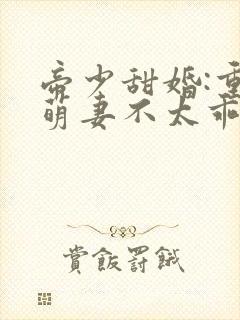 帝少甜婚:重
萌妻不太乖
赏飯罚餓